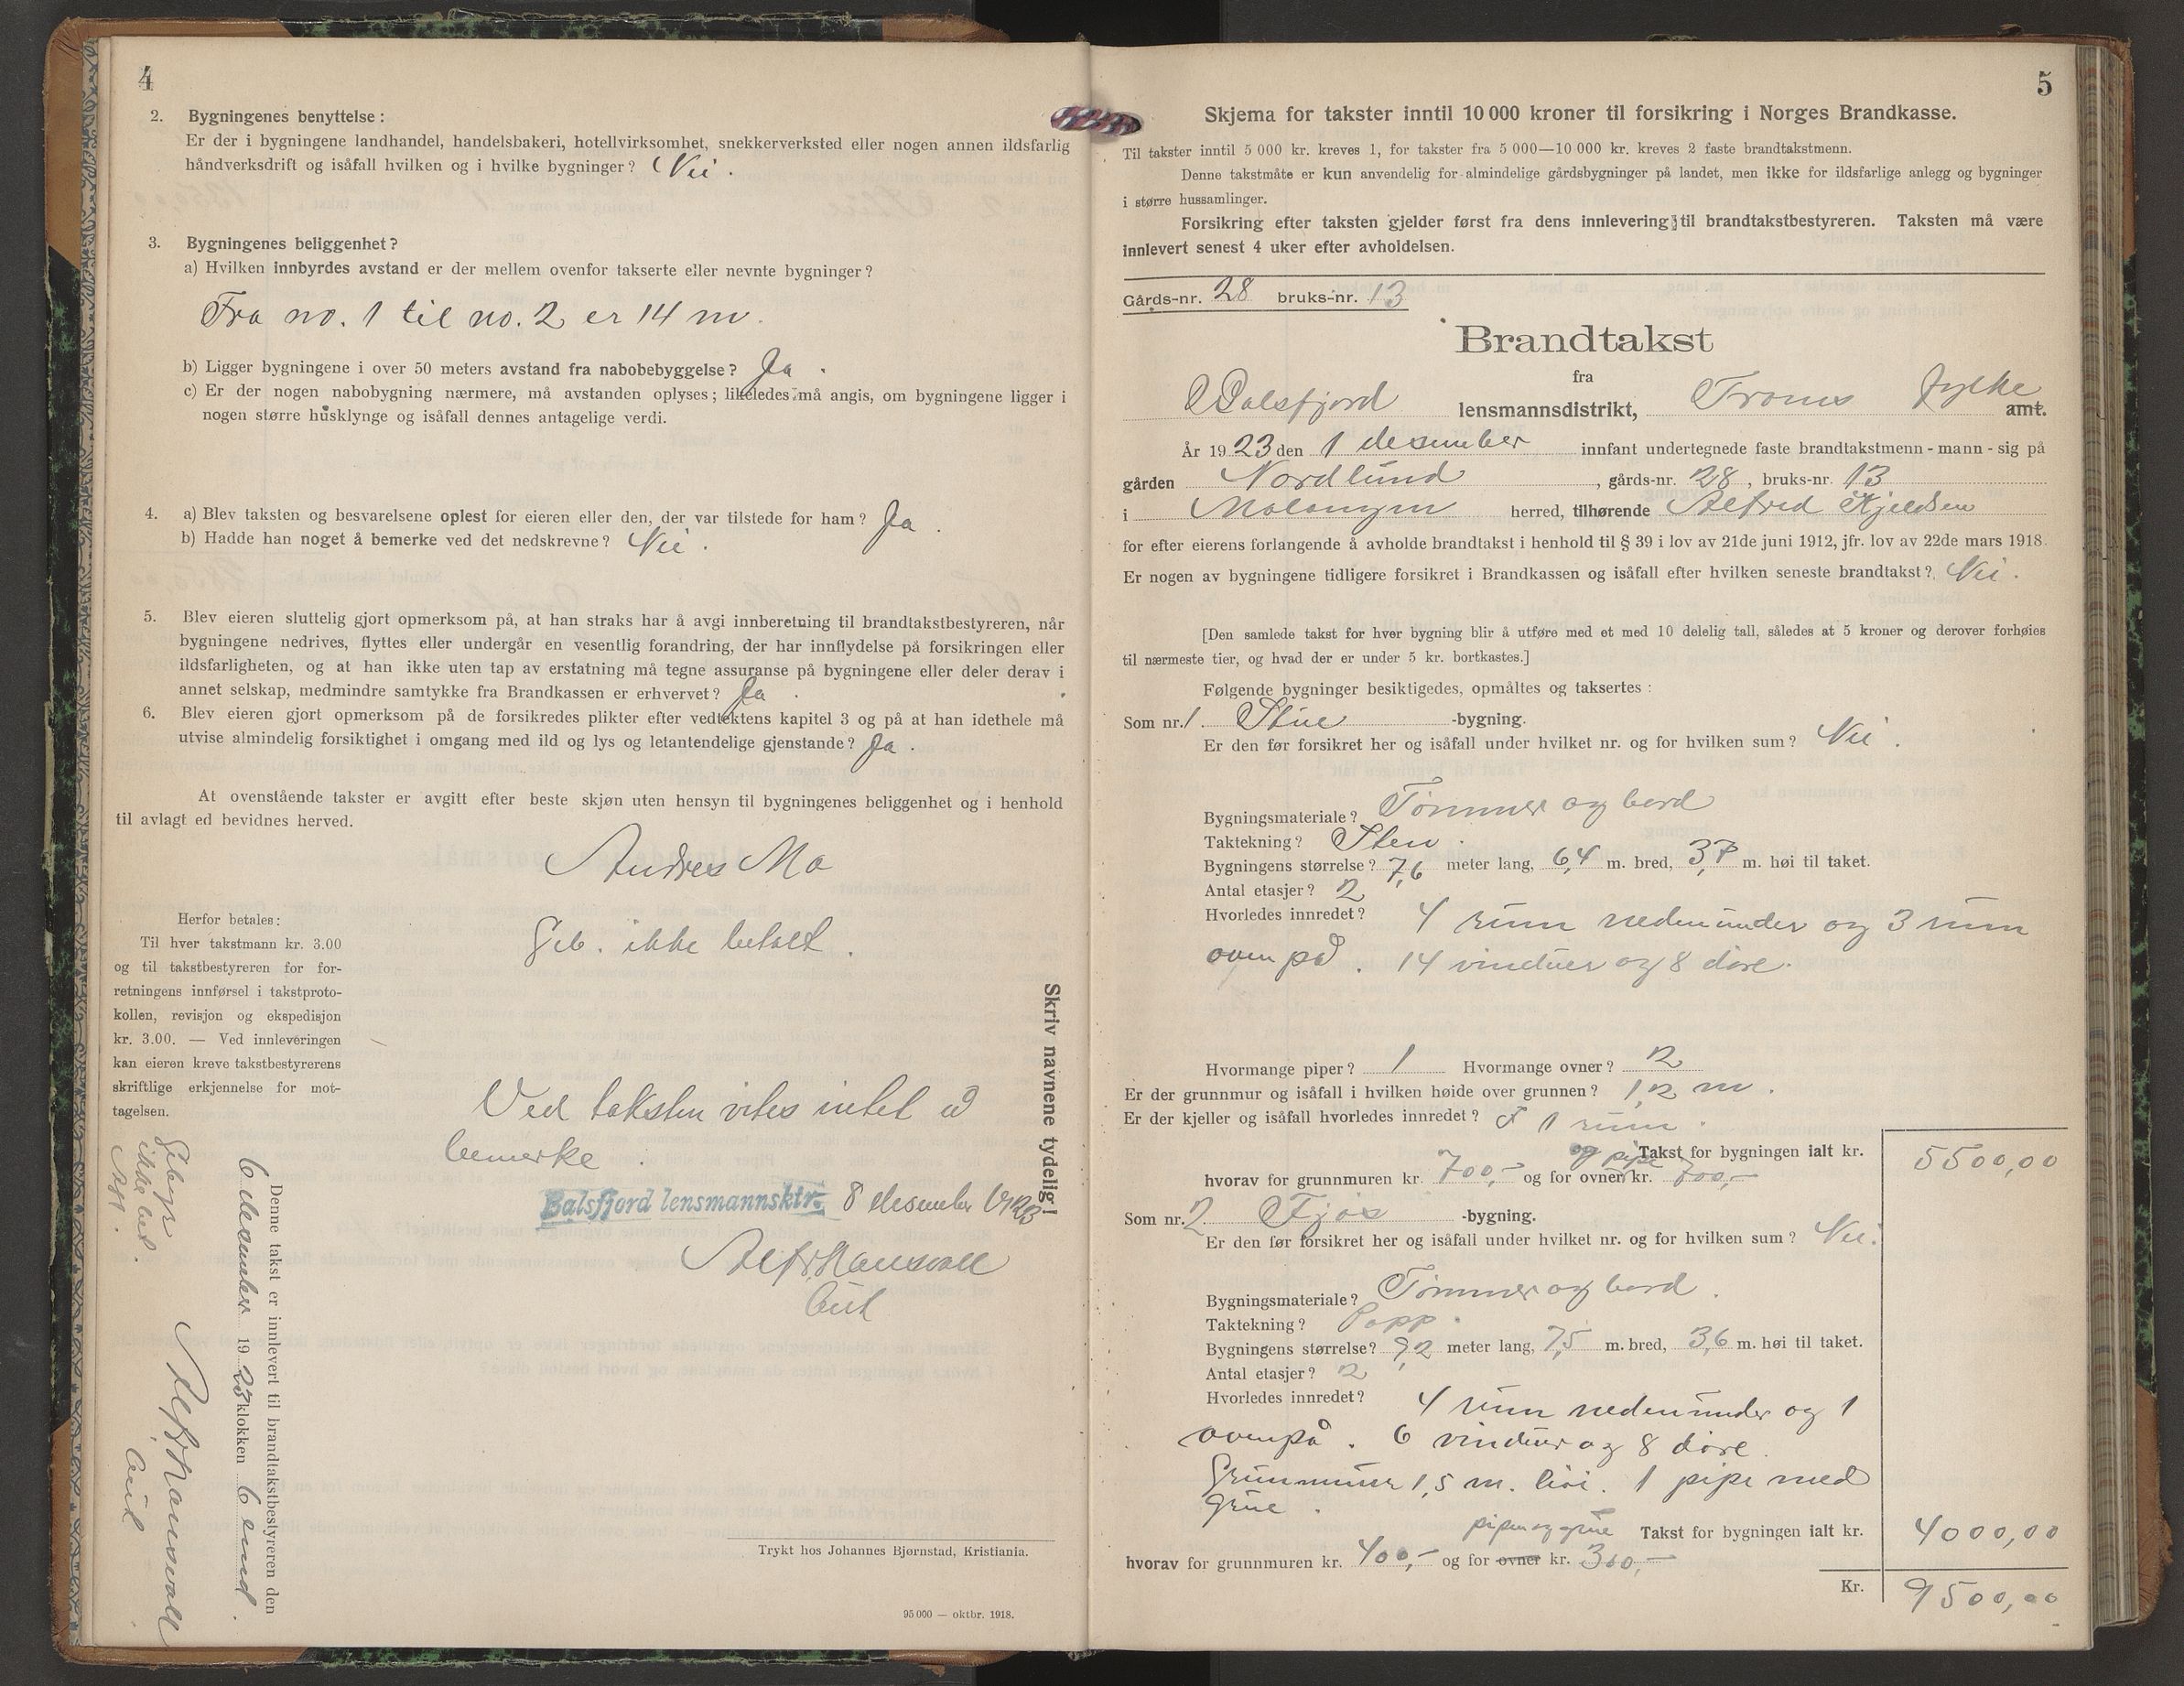 4
2. Bygningenes benyttelse:
Er der i bygningene landhandel, handelsbakeri, hotellvirksomhet, snekkerverksted eller nogen annen ildsfarlig
håndverksdrift og isåfall hvilken og i hvilke bygninger? Nei.
3. Bygningenes beliggenhet?
a) Hvilken innbyrdes avstand er der mellem ovenfor takserte eller nevnte bygninger?
Fra no. 1 til no. 2 er 14 m.
b) Ligger bygningene i over 50 meters avstand fra nabobebyggelse? Ja.
c) Er der nogen nabobygning nærmere, må avstanden oplyses; likeledes må angis, om bygningene ligger i
nogen større husklynge og isåfall dennes antagelige verdi.
4. a) Blev taksten og besvarelsene oplest for eieren eller den, der var tilstede for ham? Ja.
b) Hadde han noget å bemerke ved det nedskrevne? Nei.
5. Blev eieren sluttelig gjort opmerksom på, at han straks har å avgi innberetning til brandtakstbestyreren, når
bygningene nedrives, flyttes eller undergår en vesentlig forandring, der har innflydelse på forsikringen eller
ildsfarligheten, og at han ikke uten tap av erstatning må tegne assuranse på bygningene eller deler derav i
annet selskap, medmindre samtykke fra Brandkassen er erhvervet? Ja.
6. Blev eieren gjort opmerksom på de forsikredes plikter efter vedtektens kapitel 3 og på at han idethele må
utvise almindelig forsiktighet i omgang med ild og lys og letantendelige gjenstande? Ja.
At ovenstående takster er avgitt efter beste skjøn uten hensyn til bygningenes beliggenhet og i henhold
til avlagt ed bevidnes herved.
Andreas Mo
Geb. ikke betalt.
Herfor betales:
Til hver takstmann kr. 3.00
og til takstbestyreren for for-
retningens innførsel i takstproto-
kollen, revisjon og ekspedisjon
kr. 3.00. — Ved innleveringen
kan eieren kreve takstbestyrerens
skriftlige erkjennelse for mot-
tagelsen.
Skriv navnene tydelig!
Ved taksten vites intet å
bemerke.
Balsfjord lensmannsktr. 8 desember 1923
Alf Hansvoll
Denne takst er innlevert til brandtakstbestyreren den
6 desember 1923 klokken 6 emd.
Alf Hansvoll
Gebyr
ikke bet.
Trykt hos Johannes Bjørnstad, Kristiania.
95 000 — oktbr. 1918.
5
Skjema for takster inntil 10 000 kroner til forsikring i Norges Brandkasse.
Til takster inntil 5 000 kr. kreves 1, for takster fra 5 000—10 000 kr. kreves 2 faste brandtakstmenn.
Denne takstmåte er kun anvendelig for almindelige gårdsbygninger på landet, men ikke for ildsfarlige anlegg og bygninger
i større hussamlinger.
Forsikring efter taksten gjelder først fra dens innlevering til brandtakstbestyreren. Taksten må være
innlevert senest 4 uker efter avholdelsen.
Gårds-nr. 28 bruks-nr. 13
Brandtakst
fra
Balsfjord lensmannsdistrikt, Troms fylke amt.
År 1923 den 1 desember innfant undertegnede faste brandtakstmenn - mann - sig på
gården Nordlund, gårds-nr. 28, bruks-nr. 13
i Malangen herred, tilhørende Alfred Kjeldsen
for efter eierens forlangende å avholde brandtakst i henhold til § 39 i lov av 21de juni 1912, jfr. lov av 22de mars 1918.
Er nogen av bygningene tidligere forsikret i Brandkassen og isåfall efter hvilken seneste brandtakst? Nei.
[Den samlede takst for hver bygning blir å utføre med et med 10 delelig tall, således at 5 kroner og derover forhøies
til nærmeste tier, og hvad der er under 5 kr. bortkastes.]
Følgende bygninger besiktigedes, opmåltes og taksertes:
Som nr. 1. Stue -bygning.
Er den før forsikret her og isåfall under hvilket nr. og for hvilken sum? Nei.
Bygningsmateriale? Tømmer og bord
Taktekning? Sten.
Bygningens størrelse? 7,6 meter lang, 6,4 m. bred, 3,7 m. høi til taket.
Antal etasjer? 2
Hvorledes innredet? 4 rum nedenunder og 3 rum
ovenpå. 14 vinduer og 8 døre.
Hvormange piper? 1 Hvormange ovner? 2
Er der grunnmur og isåfall i hvilken høide over grunnen? 1,2 m.
Er der kjeller og isåfall hvorledes innredet? I 1 rum.
og pipe Takst for bygningen ialt kr. 5500,00
hvorav for grunnmuren kr. 700,- og for ovner kr. 700,-
Som nr. 2 Fjøs -bygning.
Er den før forsikret her og isåfall under hvilket nr. og for hvilken sum? Nei.
Bygningsmateriale? Tømmer og bord.
Taktekning? Papp.
Bygningens størrelse? 9,2 meter lang, 7,5 m. bred, 3,6 m. høi til taket.
Antal etasjer? 2
Hvorledes innredet? 4 rum nedenunder og 1
ovenpå. 6 vinduer og 8 døre.
Grunnmur 1,5 m. høi. 1 pipe med
grue.
pipen og grue Takst for bygningen ialt kr. 4000,00
hvorav for grunnmuren kr. 400,- og for ovner kr. 300,-
Kr. 9500,00